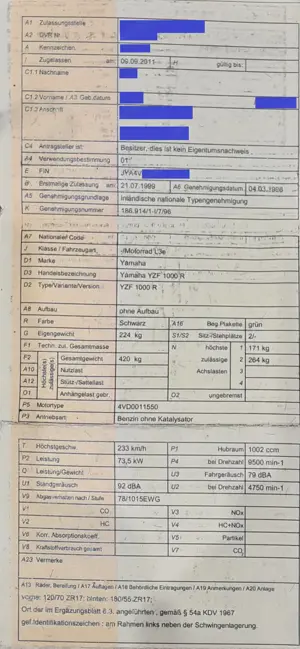 A1 Zulassungsstelle
A2 DVR Nr.
A Kennzeichen
I Zugelassen am: 09.09.2011 H gültig bis:
C1.1 Nachname
C1.2 Vorname / A3 Geb.datum
C1.3 Anschrift
C4 Antragsteller ist: Besitzer, dies ist kein Eigentumsnachweis
A4 Verwendungsbestimmung 01
E FIN JYA4V
B Erstmalige Zulassung am: 21.07.1999 A6 Genehmigungsdatum
A5 Genehmigungsgrundlage Inländische nationale Typengenehmigung
K Genehmigungsnummer
A7 Nationaler Code
J Klasse / Fahrzeugart -/Motorrad L3e
D1 Marke Yamaha
D3 Handelsbezeichnung Yamaha YZF 1000 R
D2 Type/Variante/Version YZF 1000 R
A8 Aufbau ohne Aufbau
R Farbe Schwarz A16 Beg.Plakette grün
G Eigengewicht 224 kg S1/S2 Sitz-/Stehplätze 2/-
F1 Techn. zul. Gesamtmasse N höchste 1 171 kg
F2 Höchste(s) zulässige(s) Gesamtgewicht 420 kg zulässige 2 264 kg
A10 Nutzlast Achslasten 3
A12 Stütz-/Sattellast 4
O1 Anhängelast gebr. O2 ungebremst
P5 Motortype 4VD0011550
P3 Antriebsart Benzin ohne Katalysator
T Höchstgeschw. 233 km/h P1 Hubraum 1002 ccm
P2 Leistung 73,5 kW P4 bei Drehzahl 9500 min-1
Q Leistung/Gewicht U3 Fahrgeräusch 79 dBA
U1 Standgeräusch 92 dBA U2 bei Drehzahl 4750 min-1
V9 Abgasverhalten nach / Stufe 78/1015EWG
V1 CO V3 NOx
V2 HC V4 HC+NOx
V6 Korr. Absorptionskoeff. V5 Partikel
V8 Kraftstoffverbrauch gesamt V7 CO₂
A23 Vermerke
A13 Räder, Bereifung / A17 Auflagen / A18 Behördliche Eintragungen / A19 Anmerkungen / A20 Anlage
vorne: 120/70 ZR17; hinten: 180/55 ZR17;
Ort der im Ergäzungsblatt 6.3. angeführten , gemäß § 54a KDV 1967
gef.Identifikationszeichen : am Rahmen links neben der Schwingenlagerung.